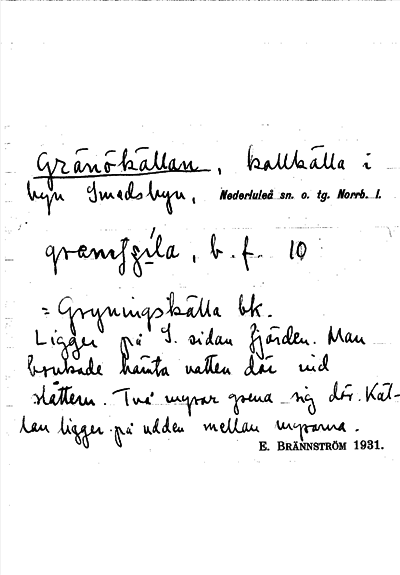 Gränökällan, kallkälla i
byn Smedsbyn, Nederluleå sn. o. tg. Norrb. l.
b. f. 10
= Gryningskälla bk.
Ligger på S. sidan fjärden. Man
brukade hämta vatten där vid
slåttern. Två myrar grena sig där. Käl-
lan ligger på udden mellan myrarna.
E. BRÄNNSTRÖM 1931.